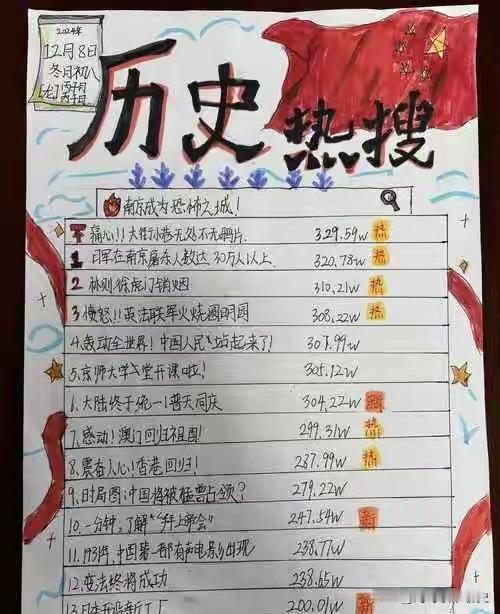 2024年
12月8日
冬月初八
历史热搜
南京成为恐怖之城!
痛心!!大街小巷无处不无鸦片. 329.59W 热
1 日军在南京屠杀人数达30万人以上. 320.78W 热
2 林则徐虎门销烟 310.21W 热
3 愤怒!!英法联军火烧圆明园 308.22W 热
4.轰动全世界!中国人民"站起来了! 307.99W
5.京师大学堂开课啦! 305.12W
6.大陆终于统一!普天同庆 304.22W 新
7.感动!澳门回归祖国! 299.31W 热
8.震奋人心!香港回归! 287.99W 热
9.时局图:中国将被猛兽占领? 279.22W
10.一分钟,了解"拜上帝会" 247.54W 新
11.1931年,中国第一部有声电影出现 238.77W
12.变法终将成功 238.65W
13. 200.01W 新